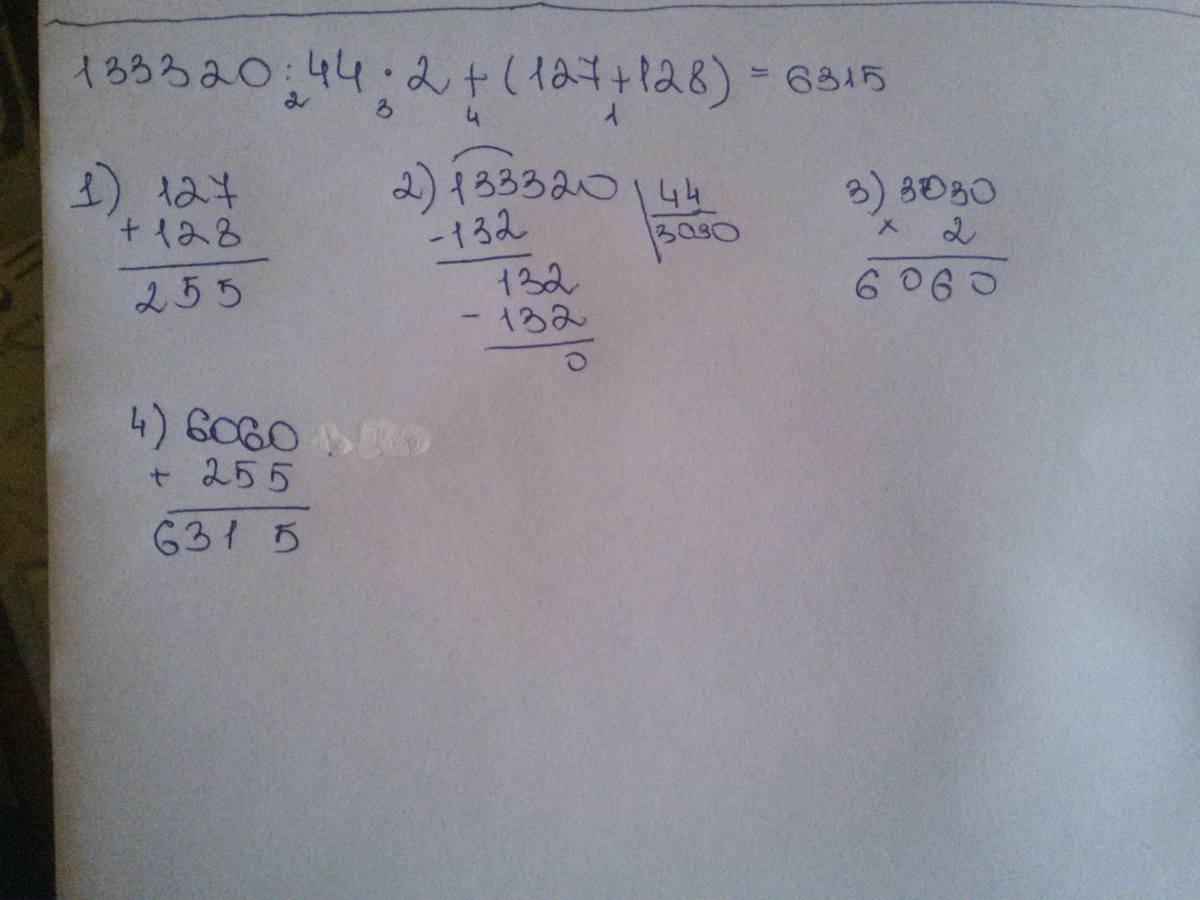 133320:44·2+(127+128)=6315
2 3 4 1
1) 127
+128
255
2) 133320 44
-132 3030
132
-132
0
3) 3030
× 2
6060
4) 6060
+ 255
6315